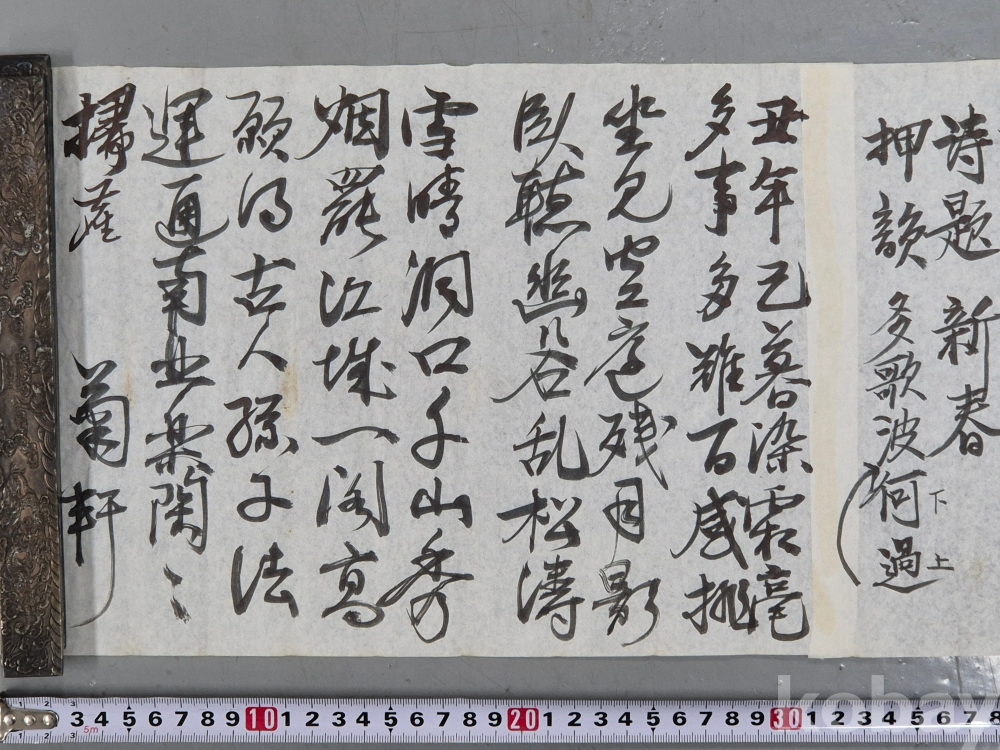 诗题 新春
押韻 多歌波何過
下 上
丑年已暮染霜毫
多事多难百感挑
坐见空庭残月影
臥聴幽谷乱松涛
雪晴洞口千山秀
烟罷江城一阁高
願得古人孫子法
運通南北楽陶〻
菊軒
3 4 5 6 7 8 9 10 1 2 3 4 5 6 7 8 9 20 1 2 3 4 5 6 7 8 9 30 1 2 3 4 5 6 7 8
5m
kobay